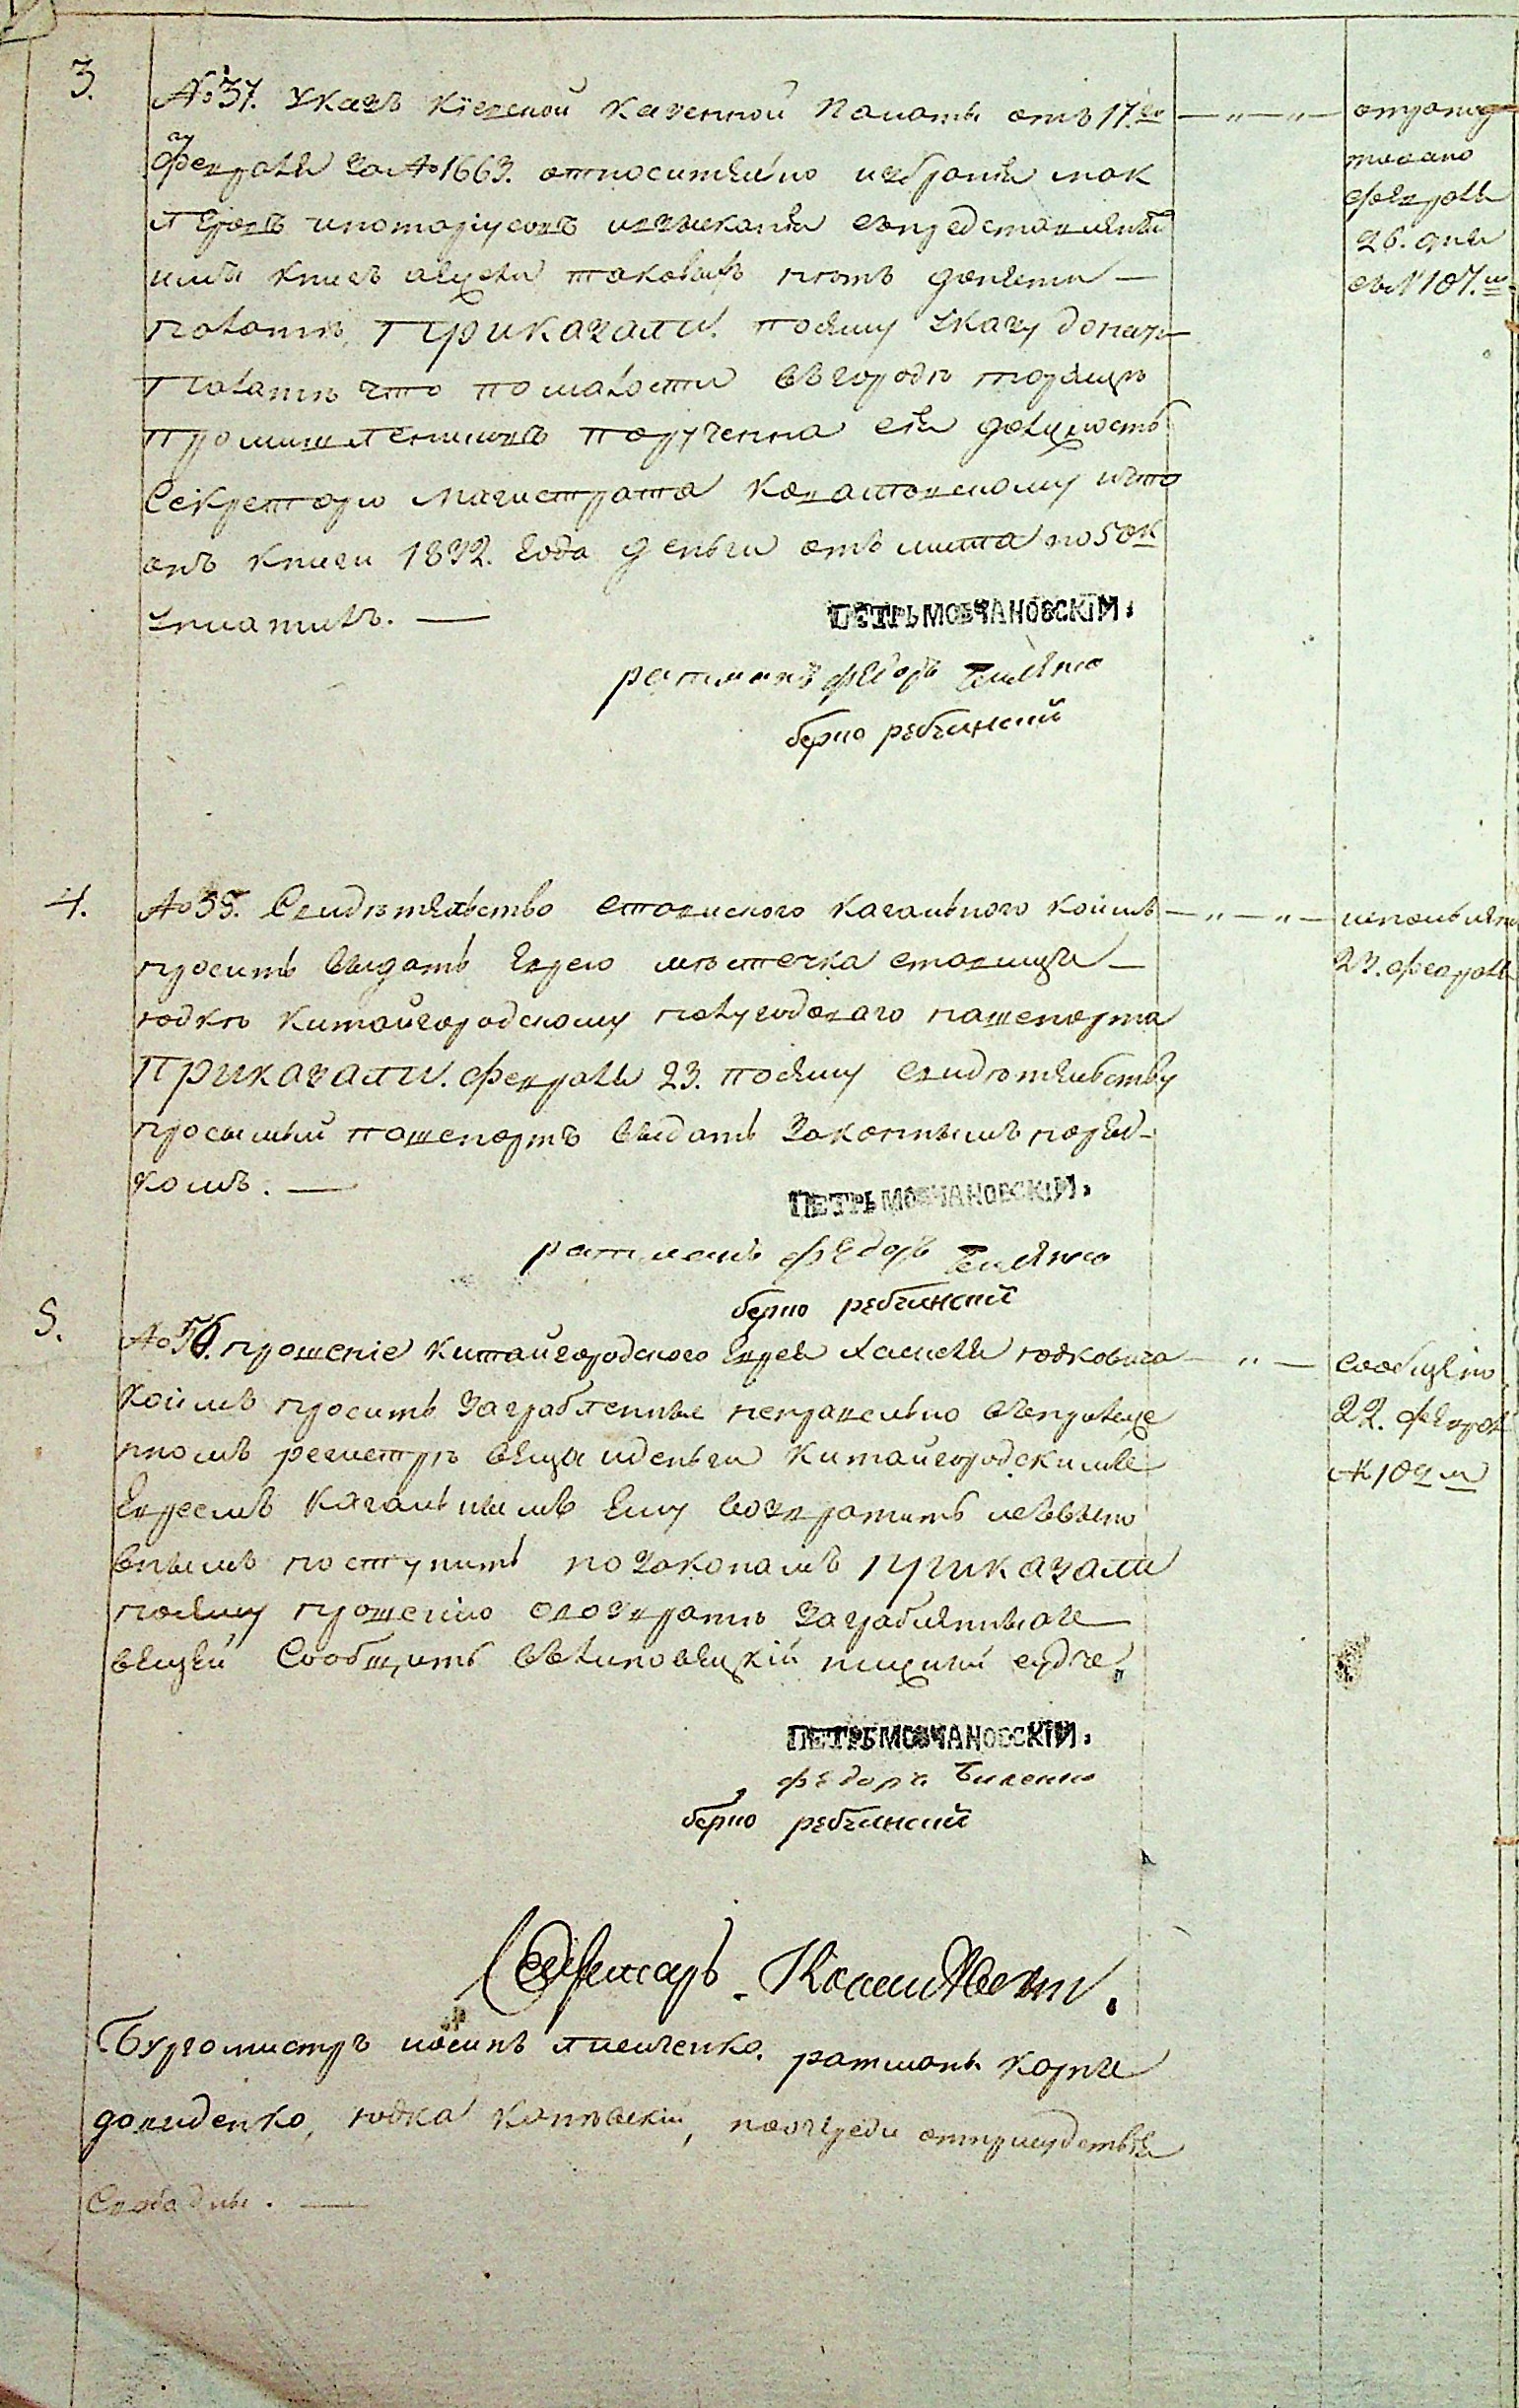 3.
№ 37. Указъ Кіевской Казенной Палаты отъ 17.го
февраля за № 1663. относительно избранія мак
леровъ инотаріусовъ извзысканія съпредставленіи
ими книгъ аесли таковыхъ нетъ донести
палате, Приказали. посему Указу донести
Палате что по малости въгороде торгующихъ
промышлениковъ порученна сія должность
Секретарю Магистрата и что
онъ книги 1832. года деньги отъ листа по 50 к
уплатилъ. —
ПЕТРЪ МОВЧАНОВСКІЙ.
ратманъ федоръ Биленко
берко ребчинский
— „ — „ —
феврали
26. дня
съ № 107.м
4.
№ 55. Свидетельство ставиского кагального коимъ
просить выдать Еврею местечка ставища —
юдке Китайгородскому полугодоваго пашепорта
Приказали. Февраля 23. посему свидетельству
просимый пашепортъ выдать законнымъ поряд-
комъ. —
ПЕТРЪ МОВЧАНОВСКІЙ.
ратманъ федоръ Биленко
берко ребчинский
— „ — „ — исполнено
23. февраля
5.
№ 56. прошеніе Китайгородского Еврея юдковича
коимъ проситъ заграбленные неправельно въприложе
нномъ регистре вещи иденьги Китайгородскимъ
Евреемъ Кагальнымъ Ему возвратить
виннымъ поступить позаконамъ Приказали
посему прошенію овозврате заграбленныхъ
вещей Сообщить въЛиповецкій нижній судъ
ПЕТРЪ МОВЧАНОВСКІЙ.
федоръ Биленко
берко ребчинский
— „ — сообщено
22. феврал
№ 102 м
Секретарь
Бургомистръ иосипъ ратманъ карпъ
давиденко, юдка каневскій, поочереди отприсудствія
Свободны. —